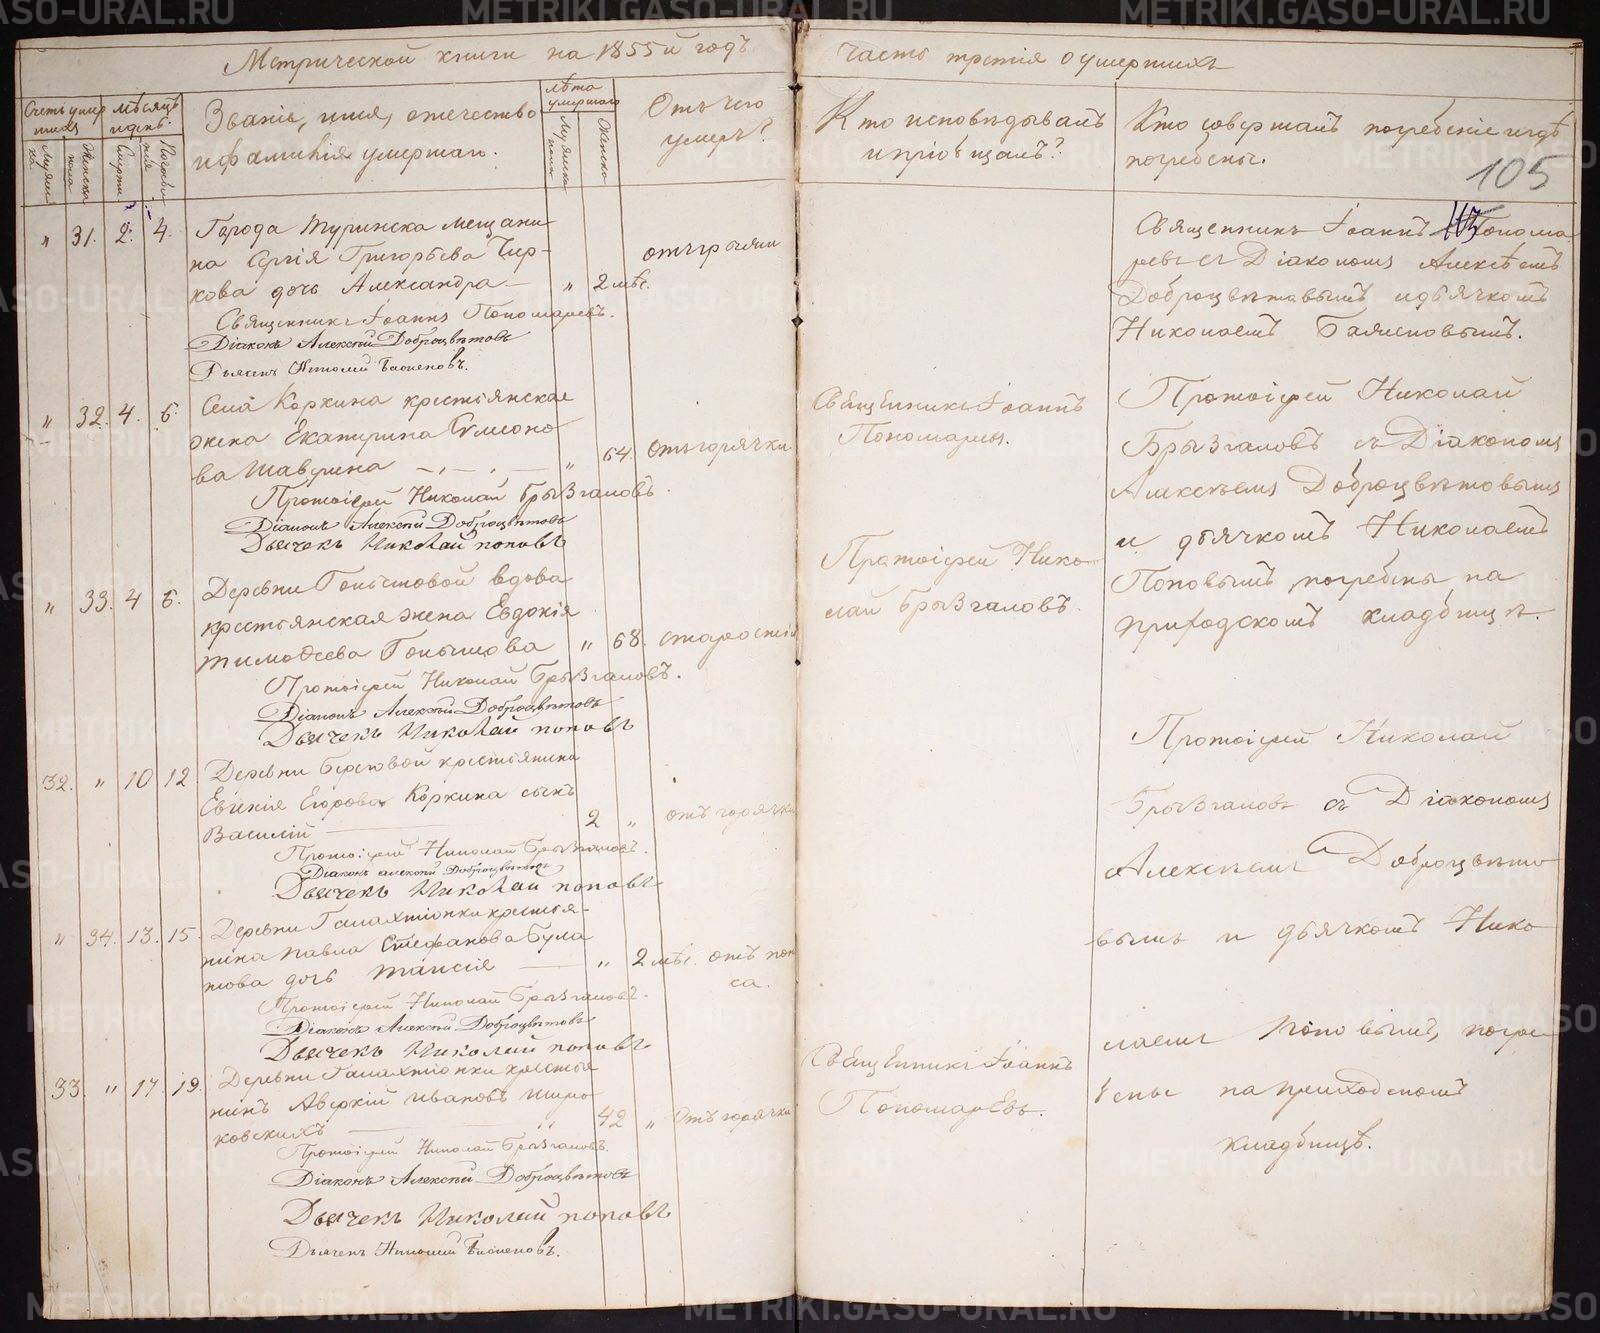 Метрической книги на 1855й годъ
часть третія о умершихъ
Счетъ умер
шихъ
мѣсяцъ
и день.
Званіе, имя, отечество
и фамилія умершаго.
лѣта
умершаго
Отъ чего
умеръ?
Кто исповѣдывалъ
и пріобщалъ?
Кто совершалъ погребеніе и гдѣ
погребены.
105
" 31. 2. 4. Города Туринска мещани
на Сергія Григорьева Чир-
кова дочь Александра — " 2 мѣс.
Священникъ Іоаннъ Пономаревъ.
Діаконъ Алексѣй Доброцвѣтовъ
Священникъ Іоаннъ Понома
ревъ съ Діакономъ Алексѣемъ
Доброцвѣтовымъ и дьячкомъ
Николаемъ
" 32. 4. 6. Села Коркина крестьянская
жена Екатерина Симоно
ва — " 64. отъ горячки
Протоіерей Николай Брызгаловъ.
Діаконъ Алексѣй Доброцвѣтовъ
Дьячекъ Николай поповъ
Священникъ Іоаннъ
Пономаревъ.
Протоіерей Николай
Брызгаловъ съ Діакономъ
Алексѣемъ Доброцвѣтовымъ
и дьячкомъ Николаемъ
Поповымъ, погребены на
приходскомъ кладбищѣ.
" 33. 4 6. Деревни вдова
крестьянская жена Евдокія
тимоѳеева " 68. старости
Протоіерей Николай Брызгаловъ.
Діаконъ Алексѣй Доброцвѣтовъ
Дьячекъ Николай поповъ
Протоіерей Нико
лай Брызгаловъ.
32. " 10 12 Деревни крестьянина
Евгенія Егорова Коркина сынъ
Василій — 2 " отъ горячки
Протоіерей Николай Брызгаловъ.
Діаконъ алексѣй Доброцвѣтовъ
Дьячекъ Николай поповъ
Протоіерей Николай
Брызгаловъ съ Діакономъ
Алексѣемъ Доброцвѣто
вымъ и дьячкомъ Нико
лаемъ поповымъ, погре
бены на приходскомъ
кладбищѣ.
" 34. 13. 15. Деревни Галахтіонки крестья-
нина павла Стефанова Була
това дочь таисія — " 2 мѣс. отъ поно
са.
Протоіерей Николай Брызгаловъ.
Діаконъ Алексѣй Доброцвѣтовъ
Дьячекъ Николай поповъ
33. " 17. 19. Деревни Галахтіонки крестья
нинъ Аверкій ивановъ широ
ковскихъ — 42 " Отъ горячки
Протоіерей Николай Брызгаловъ.
Діаконъ Алексѣй Доброцвѣтовъ
Дьячекъ Николай поповъ
Дьячекъ Николай
Священникъ Іоаннъ
Пономаревъ.
METRIKI.GASO-URAL.RU